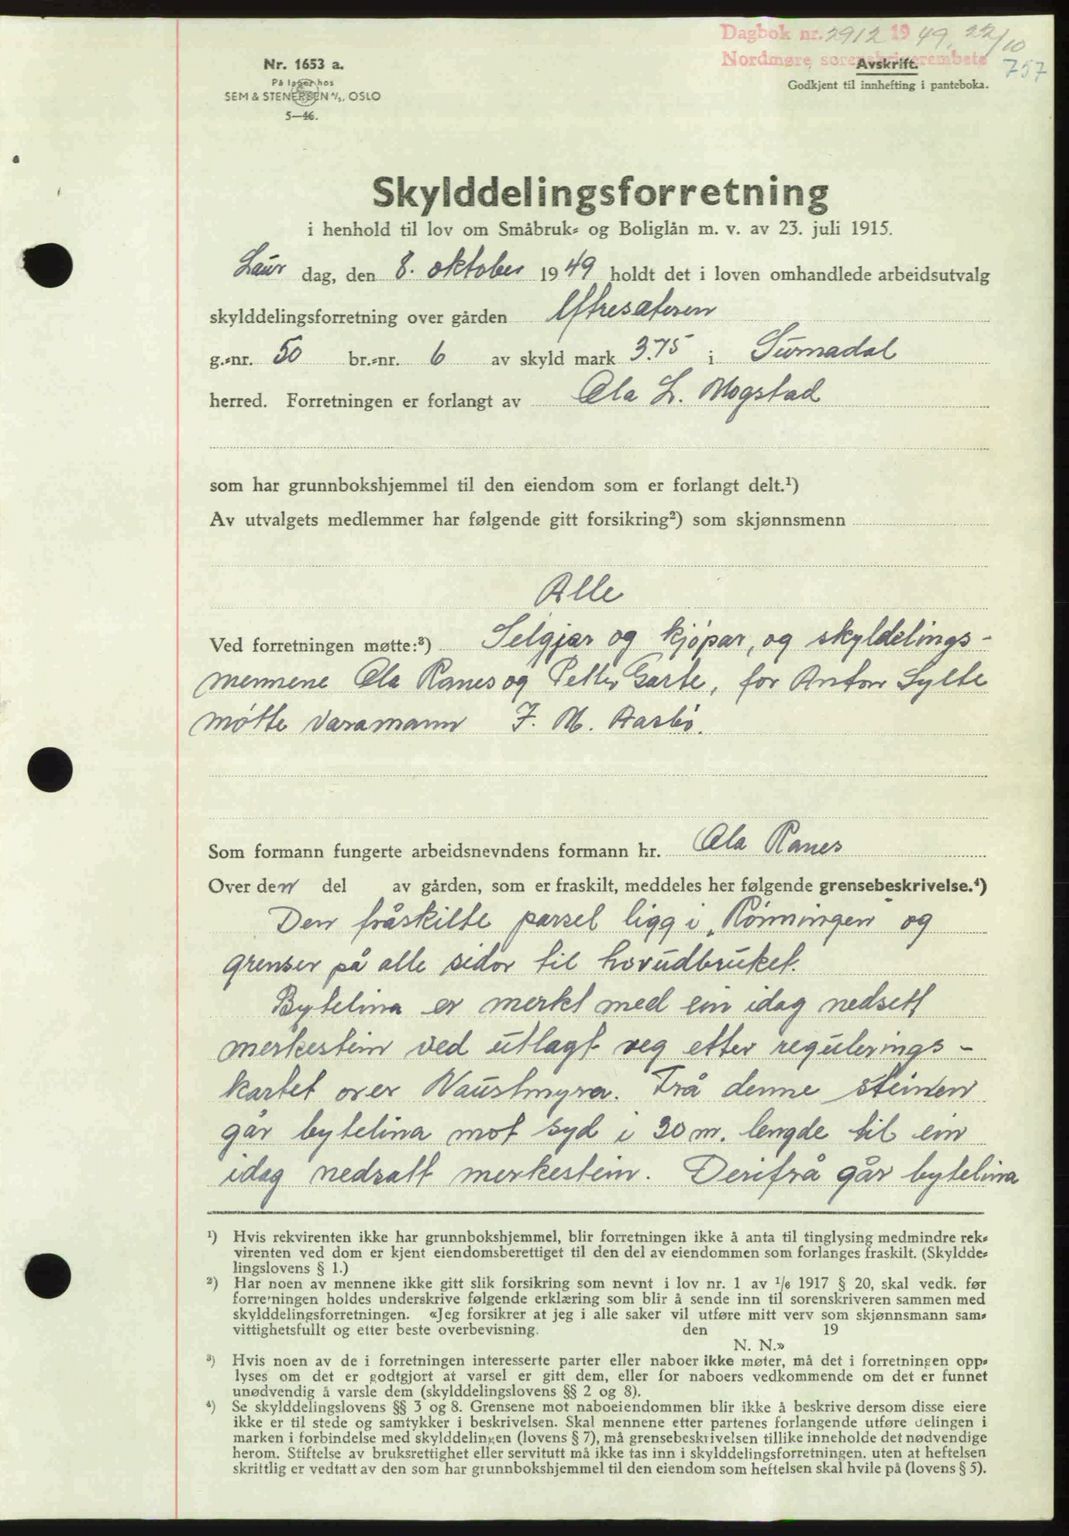 Dagbok nr. 2912 19 49, 22/10
Nordmøre sorenskriverembete
757
Nr. 1653 a.
På lager hos
SEM & STENERSEN A/S, OSLO
5—46.
Avskrift.
Godkjent til innhefting i panteboka.
Skylddelingsforretning
i henhold til lov om Småbruk- og Boliglån m. v. av 23. juli 1915.
Laur dag, den 8. oktober 1949 holdt det i loven omhandlede arbeidsutvalg
skylddelingsforretning over gården Yttresæteren
g.-nr. 50 br.-nr. 6 av skyld mark 3.75 i Surnadal
herred. Forretningen er forlangt av Ola L. Mogstad
som har grunnbokshjemmel til den eiendom som er forlangt delt.¹)
Av utvalgets medlemmer har følgende gitt forsikring²) som skjønnsmenn
Alle
Ved forretningen møtte:³) Selgjar og kjöpar, og skyldelings-
mennene Ola Ranes og Petter Garte, for Anton Sylte
møtte varamann J. M. Aasbö.
Som formann fungerte arbeidsnevndens formann hr. Ola Ranes
Over den del av gården, som er fraskilt, meddeles her følgende grensebeskrivelse.⁴)
Den fråskilte parsel ligg i „Rönningen" og
grenser på alle sidor til hovudbruket.
Bytelina er merkt med ein idag nedsett
merkestein ved utlagt veg etter regulerings-
kartet over Naustmyra. Frå denne steinen
går bytelina mot syd i 30 m. lengde til ein
idag nedsatt merkestein. Derifrå går bytelina
¹) Hvis rekvirenten ikke har grunnbokshjemmel, blir forretningen ikke å anta til tinglysing medmindre rek-
virenten ved dom er kjent eiendomsberettiget til den del av eiendommen som forlanges fraskilt. (Skyldde-
lingslovens § 1.)
²) Har noen av mennene ikke gitt slik forsikring som nevnt i lov nr. 1 av 1/6 1917 § 20, skal vedk. før
forretningen holdes underskrive følgende erklæring som blir å sende inn til sorenskriveren sammen med
skylddelingsforretningen. «Jeg forsikrer at jeg i alle saker vil utføre mitt verv som skjønnsmann sam-
vittighetsfullt og etter beste overbevisning. den 19
N. N.»
³) Hvis noen av de i forretningen interesserte parter eller naboer ikke møter, må det i forretningen opp-
lyses om det er godtgjort at varsel er gitt dem, eller for naboers vedkommende om det er funnet
unødvendig å varsle dem (skylddelingslovens §§ 2 og 8).
⁴) Se skylddelingslovens §§ 3 og 8. Grensene mot naboeiendommen blir ikke å beskrive dersom disse eiere
ikke er til stede og samtykker i beskrivelsen. Skal mennene etter partenes forlangende utføre delingen i
marken i forbindelse med skylddelingen (lovens § 7), må grensebeskrivelsen tillike inneholde det nødvendige
herom. Stiftelse av bruksrettighet eller servitutt må ikke tas inn i skylddelingsforretningen, uten at heftelsen
skriftlig er vedtatt av den som har grunnbokshjemmel til den eiendom som heftelsen skal hvile på (lovens § 5).